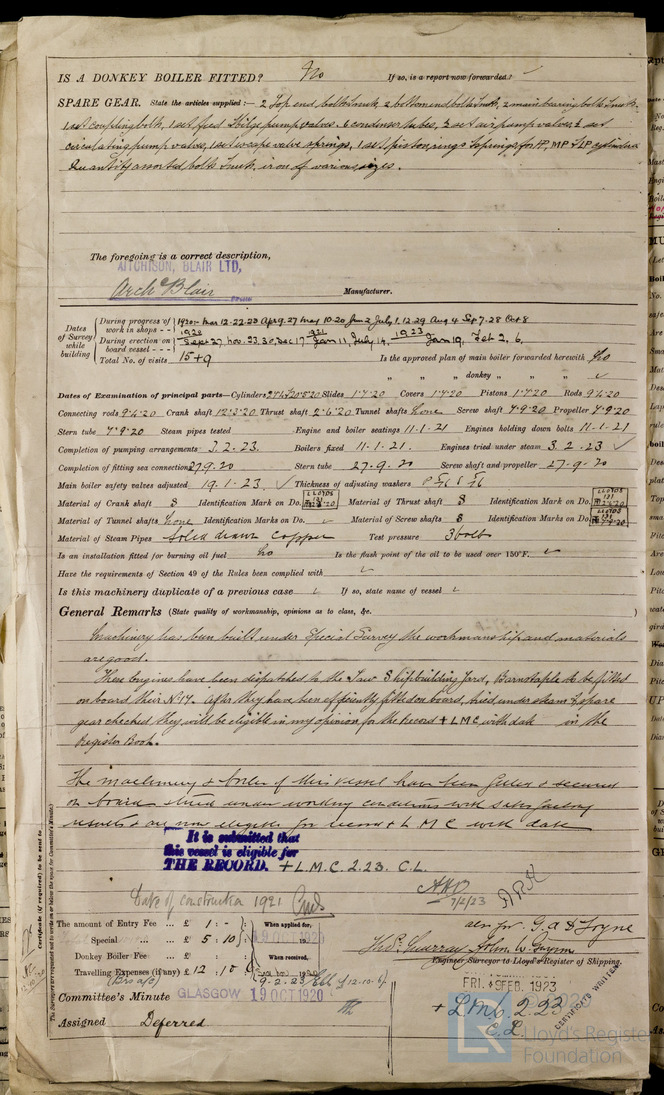 IS A DONKEY BOILER FITTED? No If so, is a report now forwarded? ✓
SPARE GEAR. State the articles supplied:— 2 Top end bolts & nuts, 2 bottom end bolts & nuts, 2 main bearing bolts & nuts
1 set coupling bolts, 1 set feed & bilge pump valves. 6 condenser tubes, ½ set air pump valves, ½ set
circulating pump valves, 1 set escape valve springs, 1 set piston rings & springs for HP, MP & LP cylinders
Quantity assorted bolts & nuts, iron of various sizes.
The foregoing is a correct description,
AITCHISON, BLAIR LTD,
Arch Blair
Manufacturer.
Dates of Survey while building
During progress of work in shops - - 1920:- Mar 12.22.23 Apr 9.27 May 10.20 Jun 2 July 1.12.29 Aug 4 Sep 7.28 Oct 8
During erection on board vessel - - - 1920 Sept 27, Nov. 23.30, Dec 17 1921 Jan 11, July 14, 1923 Jan 19, Feb 2, 6,
Total No. of visits 15+9 Is the approved plan of main boiler forwarded herewith No
" " " donkey " " ✓
Dates of Examination of principal parts—Cylinders Slides 1.7.20 Covers 1.7.20 Pistons 1.7.20 Rods 9.4.20
Connecting rods 9.4.20 Crank shaft 12.3.20 Thrust shaft 2.6.20 Tunnel shafts None Screw shaft 7.9.20 Propeller 7.9.20
Stern tube 7.9.20 Steam pipes tested Engine and boiler seatings 11.1.21 Engines holding down bolts 11.1.21
Completion of pumping arrangements 3.2.23. Boilers fixed 11.1.21. Engines tried under steam 3.2.23 ✓
Completion of fitting sea connections 27.9.20 Stern tube 27.9.20 Screw shaft and propeller 27.9.20
Main boiler safety valves adjusted 19.1.23. ✓ Thickness of adjusting washers
Material of Crank shaft S Identification Mark on Do. LLOYDS 131 Material of Thrust shaft S Identification Mark on Do. LLOYDS 131
Material of Tunnel shafts None Identification Marks on Do. ✓ Material of Screw shafts S Identification Marks on Do. LLOYDS 131 7.9.20
Material of Steam Pipes Solid drawn copper Test pressure
Is an installation fitted for burning oil fuel No Is the flash point of the oil to be used over 150°F. ✓
Have the requirements of Section 49 of the Rules been complied with ✓
Is this machinery duplicate of a previous case ✓ If so, state name of vessel ✓
General Remarks (State quality of workmanship, opinions as to class, &c. )
Machinery has been built under Special Survey the workmanship and materials
are good.
These engines have been dispatched to the Taw Shipbuilding Yard, Barnstaple to be fitted
on board their No 17. After they have been efficiently fitted on board, tried under steam & spare
gear checked they will be eligible in my opinion for the record + LMC with date in the
Register Book.
The machinery & boiler of this vessel have been fitted & secured
on board tried under working conditions with satisfactory
results & are now eligible for record + L.M.C with date
It is submitted that
this vessel is eligible for
THE RECORD. + L.M.C. 2.23. C.L.
7/2/23
Date of construction 1921
The amount of Entry Fee ... £ 1 : - : When applied for,
Special ... ... £ 5 : 10 : 19 OCT 1920
Donkey Boiler Fee ... £ : : When received,
Travelling Expenses (if any) £ 12 : 10 9.2.23
Engineer Surveyor to Lloyd's Register of Shipping.
Committee's Minute GLASGOW 19 OCT 1920
FRI. 9 FEB. 1923
Assigned Deferred
+ LMC 2.23
C.L.
CERTIFICATE WRITTEN
Certificate (if required) to be sent to
The Surveyors are requested not to write on or below the space for Committee's Minute.
Lloyd's Register
Foundation